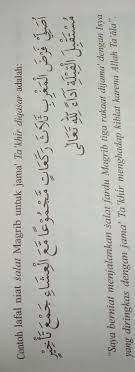 Contoh lafal niat ṡalat Magrib untuk jama' Ta'khir diqaṣar adalah:
اُصَلِّيْ فَرْضَ الْمَغْرِبِ ثَلَاثَ رَكَعَاتٍ مَجْمُوْعًا مَعَ الْعِشَاءِ جَمْعَ تَأْخِيْرٍ
مُسْتَقْبِلَ الْقِبْلَةِ اَدَاءً لِلّٰهِ تَعَالٰى
"Saya berniat menjalankan ṡalat fardu Magrib tiga rakaat dijama' dengan Isya
yang diringkas dengan jama' Ta'khir menghadap kiblat karena Allah Ta'āla".